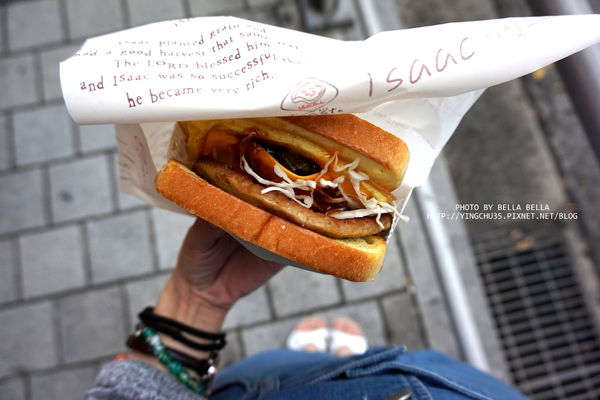 Isaac planted grain and
had a good harvest that same
The LORD blessed him
and Isaac was so successful
he became very rich.
Isaac
PHOTO BY BELLA BELLA
HTTP://YINGCHU35.PIXNET.NET/BLOG